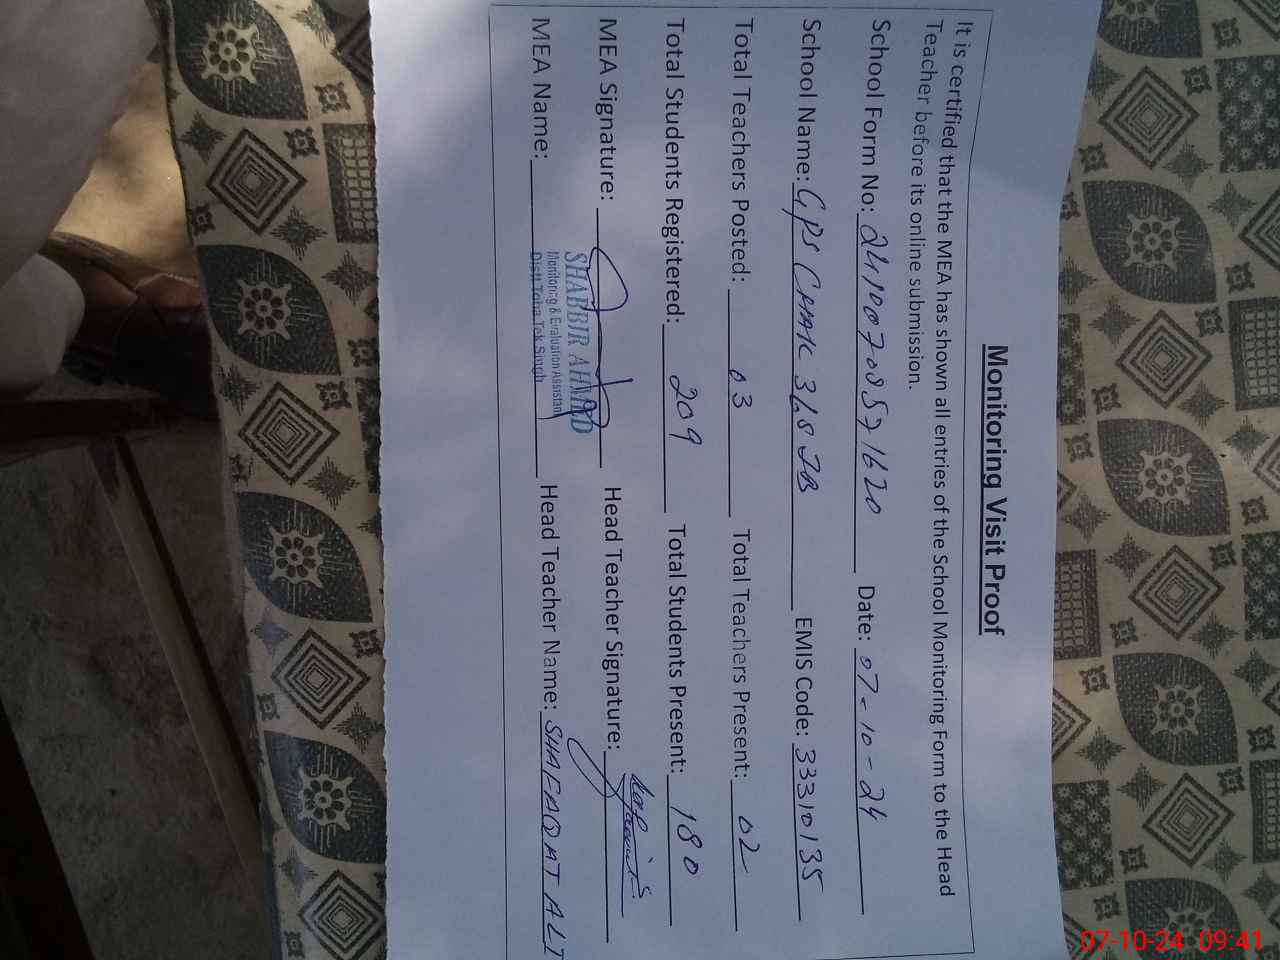 Monitoring Visit Proof
It is certified that the MEA has shown all entries of the School Monitoring Form to the Head
Teacher before its online submission.
School Form No: 24100708571620 Date: 07-10-24
School Name: GPS CHAK 368 JB EMIS Code: 33310135
Total Teachers Posted: 03 Total Teachers Present: 02
Total Students Registered: 209 Total Students Present: 180
MEA Signature: Head Teacher Signature:
SHABBIR AHMAD
Monitoring & Evaluation Assistant
Distt Toba Tek Singh
MEA Name: Head Teacher Name: SHAFAQAT ALI
07-10-24 09:41